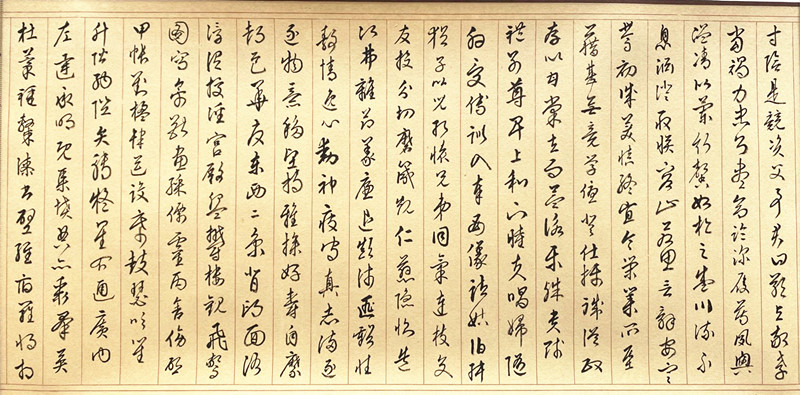 寸陰是競資父事君曰嚴與敬孝
當竭力忠則盡命臨深履薄夙興
溫凊似蘭斯馨如松之盛川流不
息淵澄取映容止若思言辭安定
篤初誠美慎終宜令榮業所基
藉甚無竟學優登仕攝職從政
存以甘棠去而益詠樂殊貴賤
禮別尊卑上和下睦夫唱婦隨
外受傅訓入奉母儀諸姑伯叔
猶子比兒孔懷兄弟同氣連枝交
友投分切磨箴規仁慈隱惻造
次弗離節義廉退顛沛匪虧性
靜情逸心動神疲守真志滿逐
逐物意移堅持雅操好爵自縻
都邑華夏東西二京背邙面洛
浮渭據涇宮殿盤鬱樓觀飛驚
圖寫禽獸畫彩仙靈丙舍傍啟
甲帳對楹肆筵設席鼓瑟吹笙
升階納陛弁轉疑星右通廣內
左達承明既集墳典亦聚群英
杜稿鍾隸漆書壁經府羅將相